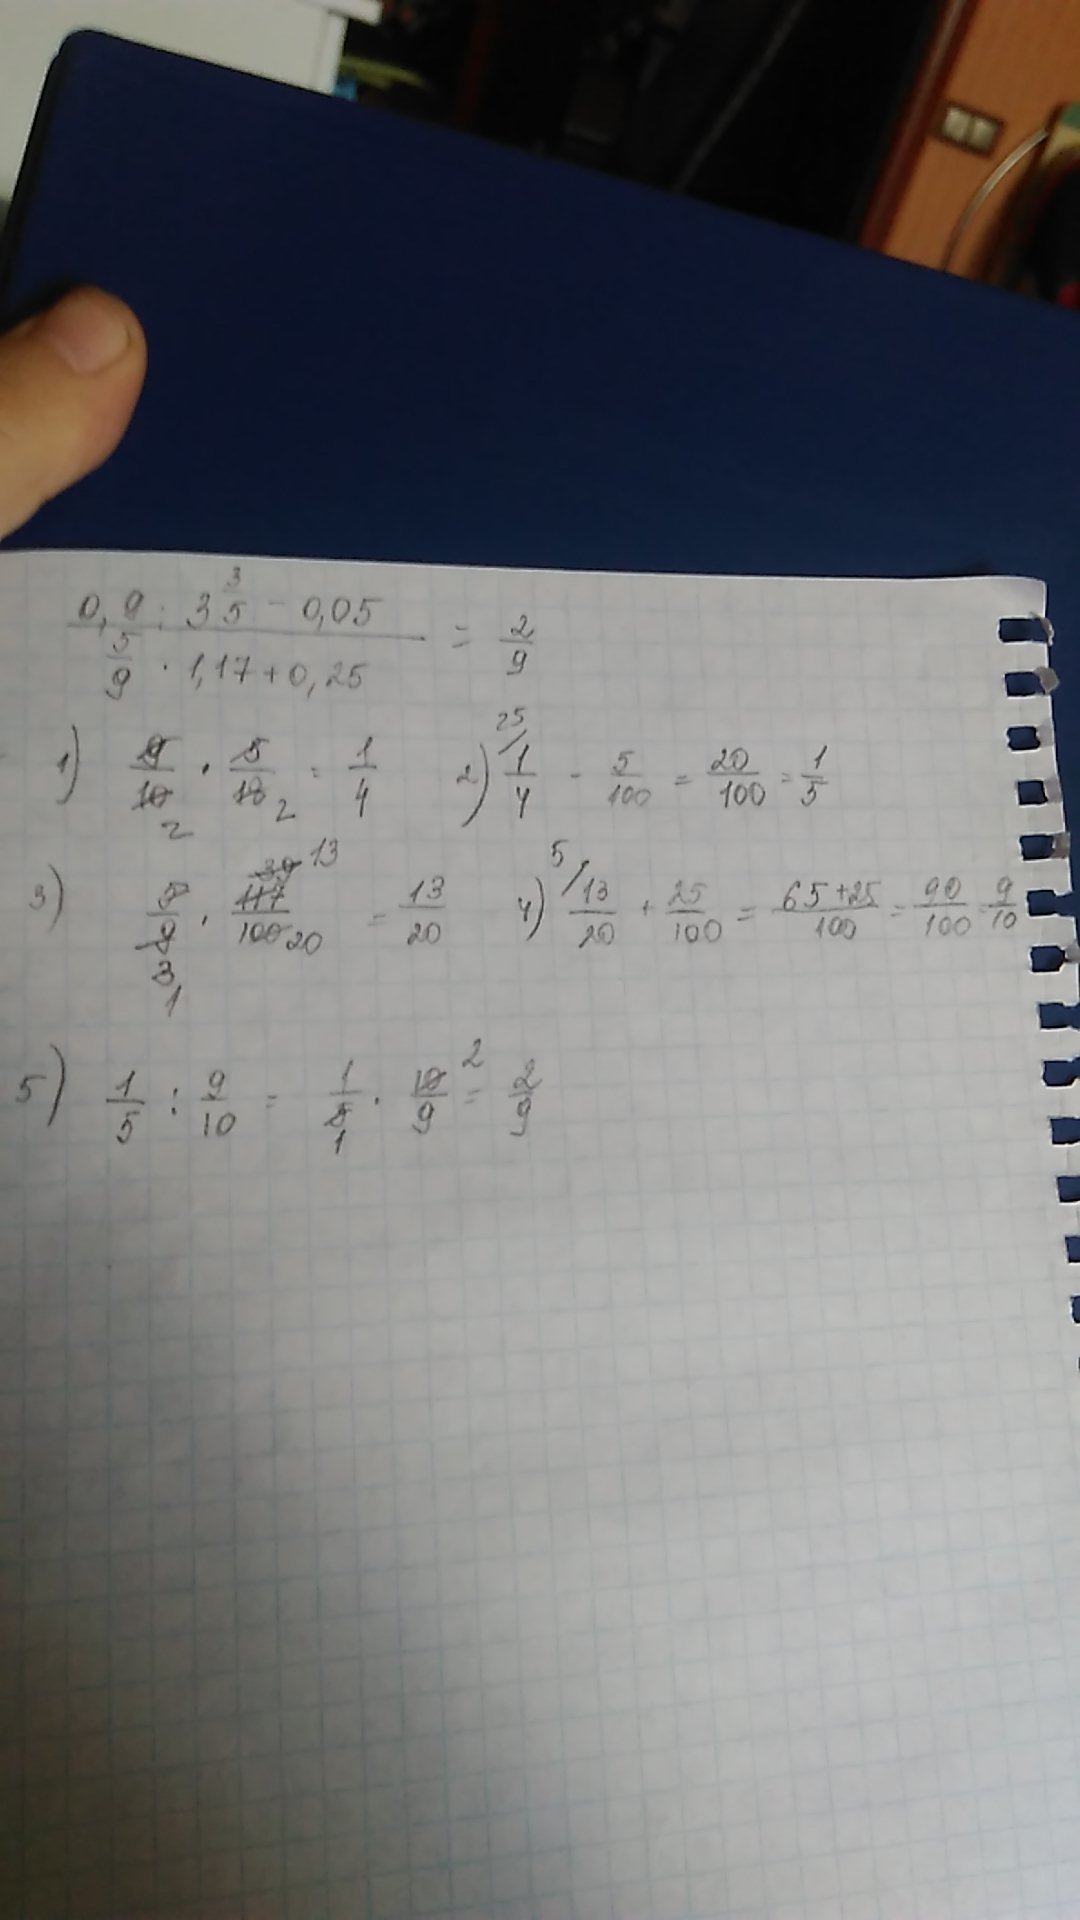 (0,9 : 3 3/5 - 0,05) / (5/9 · 1,17 + 0,25) = 2/9
1) 9/10 2 · 5/18 2 = 1/4 2) 25/ 1/4 - 5/100 = 20/100 = 1/5
3) 5/9 3 1 · 39 13 117/100 20 = 13/20 4) 5/ 13/20 + 25/100 = 65+25/100 = 90/100 = 9/10
5) 1/5 : 9/10 = 1/5 1 · 10/9 2 = 2/9